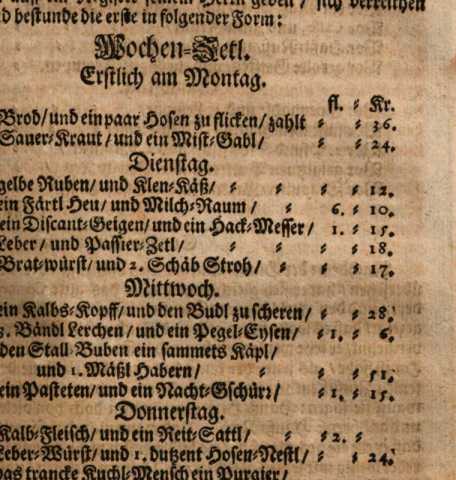 auff ein Registe seinem Herrn geben / sich verreichen
d bestunde die erste in folgender Form:
Wochen-Zetl.
Erstlich am Montag.
fl. ⸗ Kr.
Brod/ und ein paar Hosen zu flicken/ zahlt ⸗ ⸗ 36.
Sauer-Kraut / und ein Mist-Gabl/ ⸗ ⸗ 24.
Dienstag.
gelbe Ruben/ und Klen-Käß/ ⸗ ⸗ ⸗ ⸗ 12.
ein Färtl Heu/ und Milch-Raum / ⸗ 6. ⸗ 10.
ein Discant-Geigen/ und ein Hack-Messer / 1. ⸗ 15.
Leber / und Passier-Zetl/ ⸗ ⸗ ⸗ ⸗ 18.
Brat-würst/ und 2. Schäb Stroh/ ⸗ ⸗ ⸗ 17.
Mittwoch.
ein Kalbs-Kopff/ und den Budl zu scheren/ ⸗ ⸗ 28.
3. Bändl Lerchen / und ein Pegel-Eysen/ ⸗ 1. ⸗ 6.
den Stall-Buben ein sammets Käpl/
und 1. Mäßl Habern/ ⸗ ⸗ ⸗ 51.
ein Pasteten/ und ein Nacht-Gschürz/ ⸗ 1. ⸗ 15.
Donnerstag.
Kalb-Fleisch/ und ein Reit-Sattl/ ⸗ ⸗ 2. ⸗
Leber-Würst/ und 1. dutzent Hosen-Nestl/ ⸗ ⸗ 24.
das krancke Kuchl-Mensch ein Purgier/